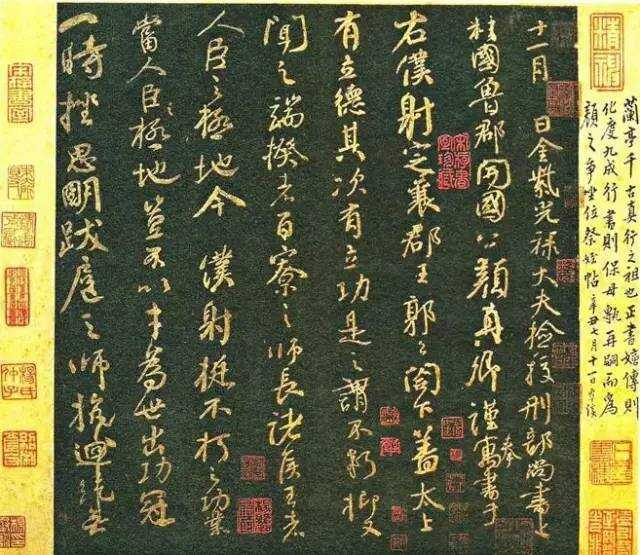 蘭亭千古真行之祖也正書嫡傳則
化度九成行書則保母甎再嗣而為
顏之爭坐位祭姪帖 辛丑七月十一日
十一月 日金紫光祿大夫檢校刑部尚書上
柱國魯郡開國公顏真卿謹奉寓書于
右僕射定襄郡王郭公閤下蓋太上
有立德其次有立功是之謂不朽抑又
聞之端揆者百寮之師長諸侯王者
人臣之極地今僕射挺不朽之功業
當人臣之極地豈不以才為世出功冠
一時挫思明跋扈之師抗迴紇無